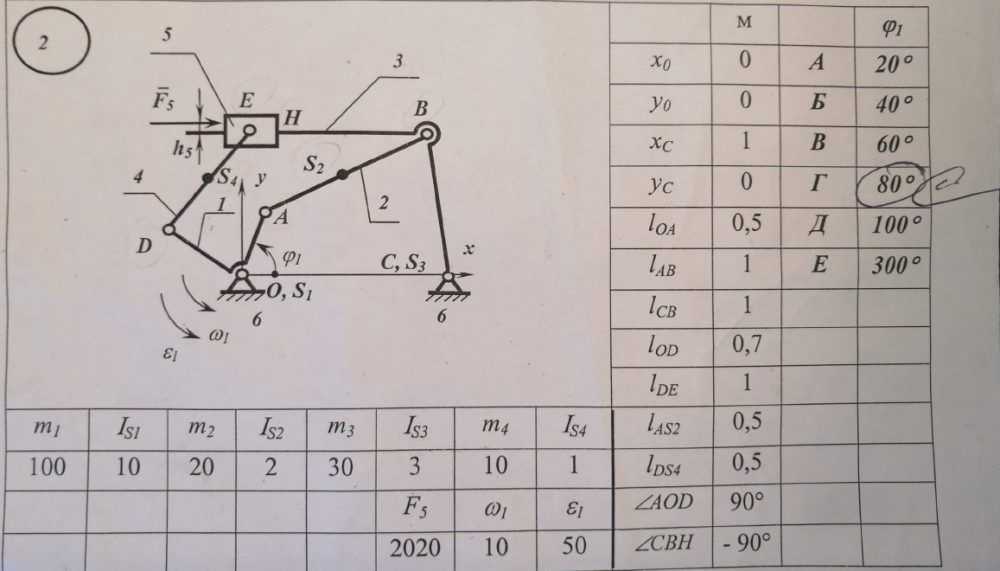 2
5
3
F̄5
E
H
B
h5
S4
y
S2
4
1
A
2
D
φ1
C, S3
x
O, S1
ω1
6
6
ε1
м
φ1
x0 0 А 20°
y0 0 Б 40°
xC 1 В 60°
yC 0 Г 80°
lOA 0,5 Д 100°
lAB 1 Е 300°
lCB 1
lOD 0,7
lDE 1
lAS2 0,5
lDS4 0,5
∠AOD 90°
∠CBH - 90°
m1 IS1 m2 IS2 m3 IS3 m4 IS4
100 10 20 2 30 3 10 1
F5 ω1 ε1
2020 10 50